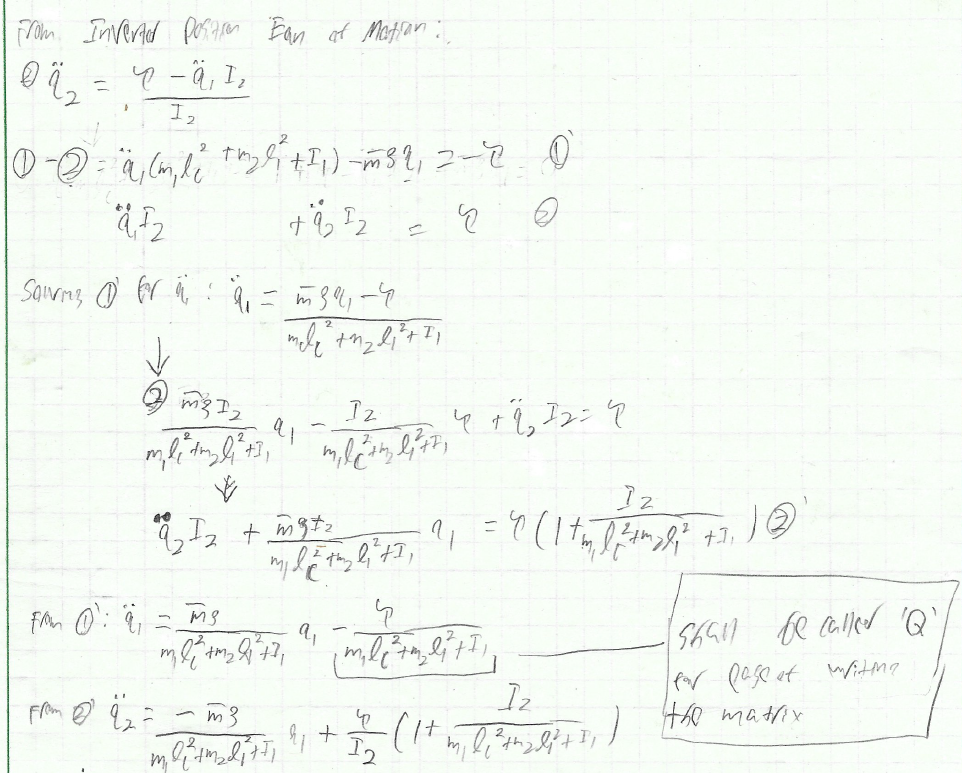 From Inverted Position Eqn of Motion:
② q̈₂ = (τ − q̈₁ I₂) / I₂
① − ② = q̈₁(m₁l_c² + m₂l₁² + I₁) − m̄gq₁ = −τ ①'
q̈₁I₂ + q̈₂I₂ = τ ②
Solving ①' for q̈₁ : q̈₁ = (m̄gq₁ − τ) / (m₁l_c² + m₂l₁² + I₁)
↓
② (m̄gI₂) / (m₁l_c² + m₂l₁² + I₁) q₁ − (I₂) / (m₁l_c² + m₂l₁² + I₁) τ + q̈₂I₂ = τ
↓
q̈₂I₂ + (m̄gI₂) / (m₁l_c² + m₂l₁² + I₁) q₁ = τ(1 + (I₂) / (m₁l_c² + m₂l₁² + I₁)) ②'
From ①': q̈₁ = (m̄g) / (m₁l_c² + m₂l₁² + I₁) q₁ − (τ) / (m₁l_c² + m₂l₁² + I₁)
shall be called 'Q'
for ease of writing
the matrix
From ②' q̈₂ = (−m̄g) / (m₁l_c² + m₂l₁² + I₁) q₁ + (τ / I₂)(1 + (I₂) / (m₁l_c² + m₂l₁² + I₁))